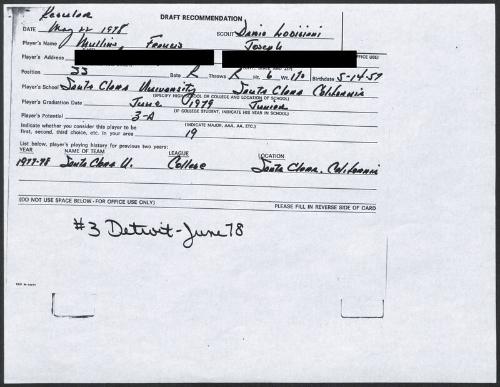 Regular
DRAFT RECOMMENDATION
DATE May 22 1978 SCOUT Dario Lodigiani
Player's Name Mullins Francis Joseph
Player's Address OFFICE USE)
Position SS Bats R Throws R Ht. 6 Wt. 170 Birthdate 5-14-57
Player's School Santa Clara University Santa Clara California
(SPECIFY HIGH SCHOOL OR COLLEGE AND LOCATION OF SCHOOL)
Player's Graduation Date June 1979 Junior
(IF COLLEGE STUDENT, INDICATE HIS YEAR IN SCHOOL)
Player's Potential 3-A
(INDICATE MAJOR, AAA, AA, ETC.)
Indicate whether you consider this player to be
first, second, third choice, etc. in your area 19
List below, player's playing history for previous two years:
YEAR NAME OF TEAM LEAGUE LOCATION
1977-78 Santa Clara U. College Santa Clara, California
(DO NOT USE SPACE BELOW - FOR OFFICE USE ONLY) PLEASE FILL IN REVERSE SIDE OF CARD
#3 Detroit-June 78